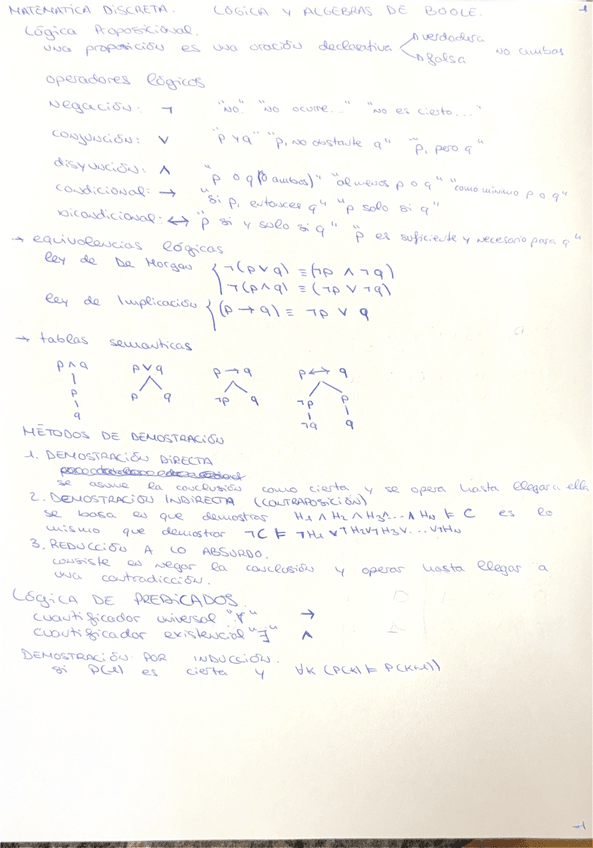 MATEMATICA DISCRETA. LÓGICA Y ALGEBRAS DE BOOLE. 1
Lógica Proposicional.
una proposición es una oración declarativa verdadera no ambas
falsa
operadores lógicos
Negación: ¬ "no" "no ocurre..." "no es cierto..."
conjunción: ∨ "p y q" "p, no obstante q" "p, pero q"
disyunción: ∧ "p o q (o ambos)" "al menos p o q" "como mínimo p o q"
condicional: → "si p, entonces q" "p solo si q"
bicondicional: ↔ "p si y solo si q" "p es suficiente y necesario para q"
→ equivalencias lógicas
ley de De Morgan { ¬(p ∨ q) ≡ (¬p ∧ ¬q)
¬(p ∧ q) ≡ (¬p ∨ ¬q)
ley de Implicación { (p → q) ≡ ¬p ∨ q
→ tablas semanticas
p ∧ q p ∨ q p → q p ↔ q
p p q ¬p q ¬p p
q ¬q q
MÉTODOS DE DEMOSTRACIÓN
1. DEMOSTRACIÓN DIRECTA
se asume la conclusión como cierta y se opera hasta llegar a ella
2. DEMOSTRACIÓN INDIRECTA (CONTRAPOSICIÓN)
se basa en que demostrar H1 ∧ H2 ∧ H3 ∧ ... ∧ HN ⊨ C es lo
mismo que demostrar ¬C ⊨ ¬H1 ∨ ¬H2 ∨ ¬H3 ∨ ... ∨ ¬HN
3. REDUCCIÓN A LO ABSURDO.
consiste en negar la conclusión y operar hasta llegar a
una contradicción.
LÓGICA DE PREDICADOS.
cuantificador universal "∀" →
cuantificador existencial "∃" ∧
DEMOSTRACIÓN POR INDUCCIÓN.
si P(1) es cierta y ∀k (P(k) ⊨ P(k+1))
-1